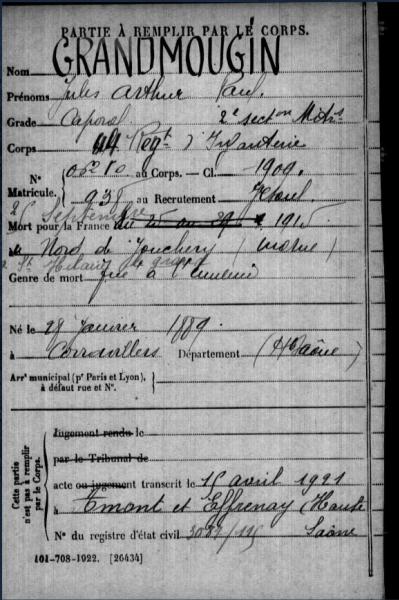 PARTIE À REMPLIR PAR LE CORPS.
Nom GRANDMOUGIN
Prénoms Jules Arthur Paul.
Grade Caporal 2e section Mitrs
Corps 44 Regt d'Infanterie
N° Matricule. { au Corps. — Cl. 1909.
935 au Recrutement Vesoul
26 Septembre
Mort pour la France 1915
Nord de Jonchery (Marne)
St Hilaire le grand
Genre de mort tué à l'ennemi
Né le 28 Janvier 1889.
à Corravillers Département (Hte Saône)
Arrt municipal (pr Paris et Lyon), à défaut rue et N°. {
Cette partie n'est pas à remplir par le Corps.
Jugement rendu le
par le Tribunal de
acte ou jugement transcrit le 15 avril 1921
à Amont et Effreney (Haute
Saône
N° du registre d'état civil
101-708-1922. [26434]